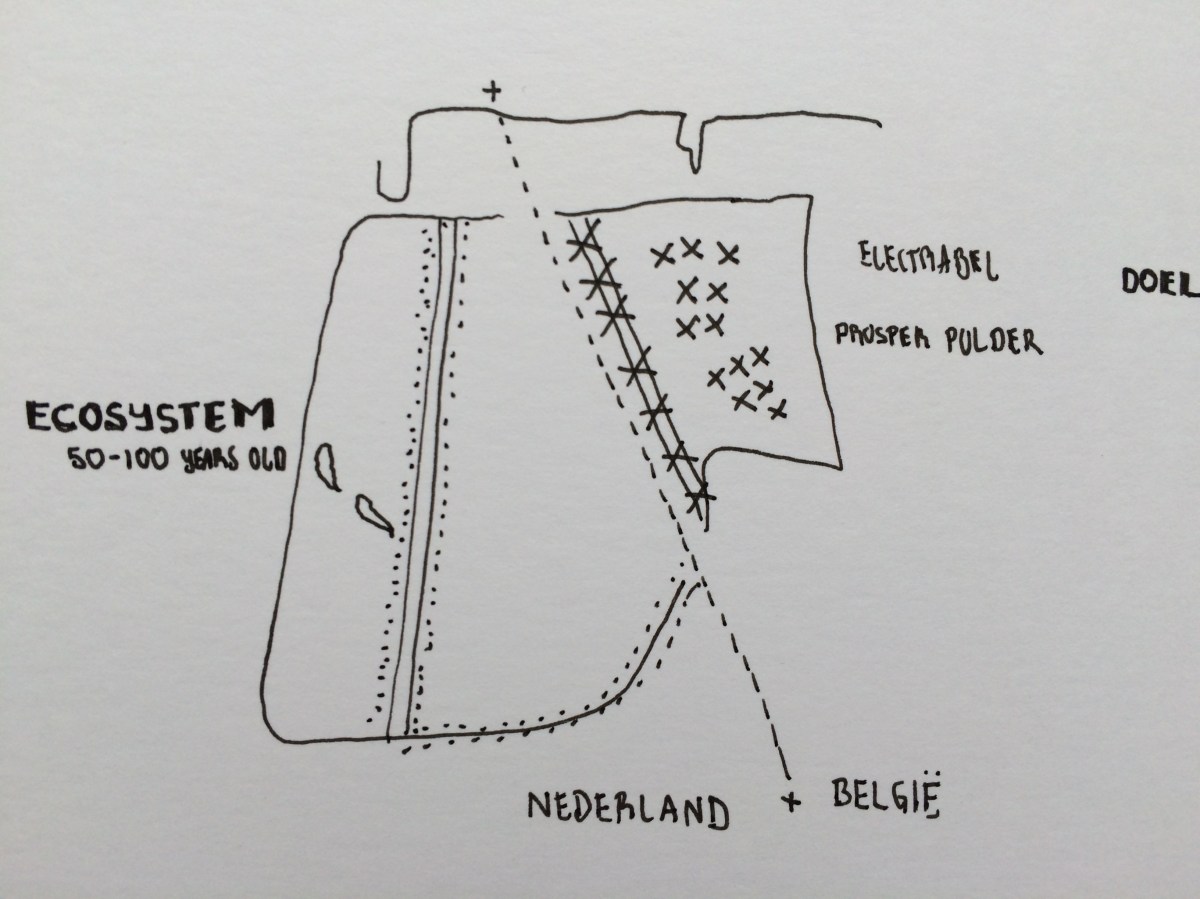 ELECTRABEL
DOEL
PROSPER POLDER
ECOSYSTEM
50-100 YEARS OLD
NEDERLAND + BELGIË